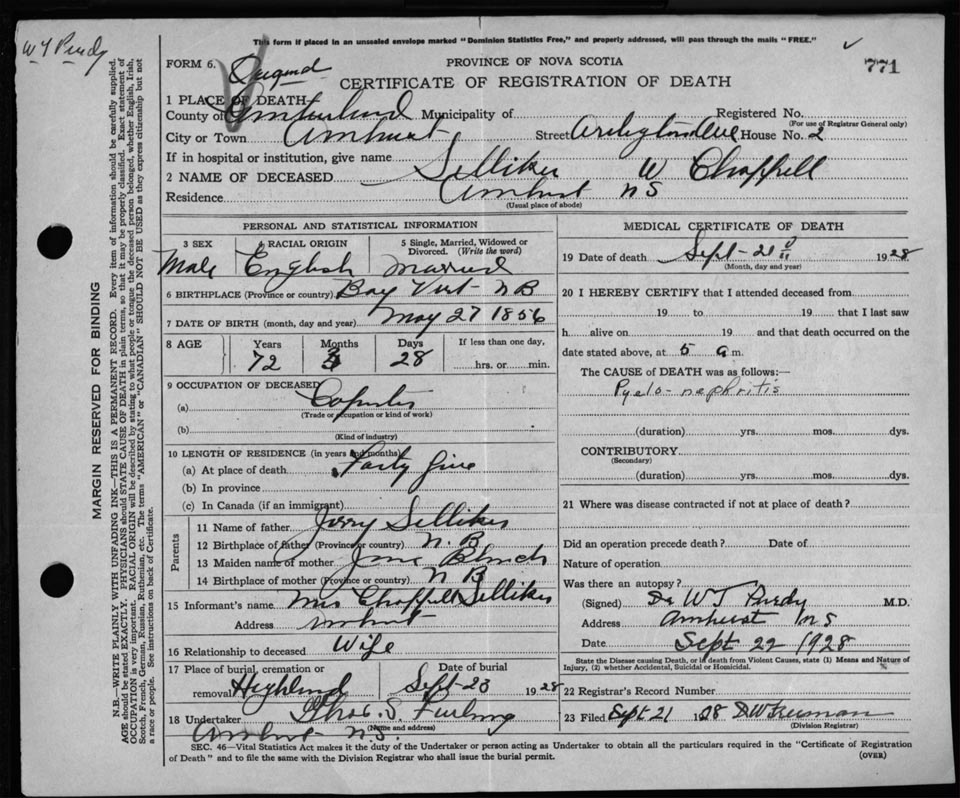 W T Purdy
This form if placed in an unsealed envelope marked "Dominion Statistics Free," and properly addressed, will pass through the mails "FREE."
FORM 6.
PROVINCE OF NOVA SCOTIA
771
CERTIFICATE OF REGISTRATION OF DEATH
1 PLACE OF DEATH
County of Cumberland Municipality of Registered No.
(For use of Registrar General only)
City or Town Amherst Street House No. 2
If in hospital or institution, give name
2 NAME OF DECEASED Selliker W Chappell
Residence Amherst NS
(Usual place of abode)
PERSONAL AND STATISTICAL INFORMATION
3 SEX Male
RACIAL ORIGIN English
5 Single, Married, Widowed or Divorced. (Write the word) Married
6 BIRTHPLACE (Province or country) Bay Vert NB
7 DATE OF BIRTH (month, day and year) May 27 1856
8 AGE Years Months Days If less than one day,
72 28 hrs. or min.
9 OCCUPATION OF DECEASED
(a)
(Trade or occupation or kind of work)
(b)
(Kind of industry)
10 LENGTH OF RESIDENCE (in years and months)
(a) At place of death Forty five
(b) In province
(c) In Canada (if an immigrant)
Parents
11 Name of father Jerry Selliker
12 Birthplace of father (Province or country) N.B
13 Maiden name of mother Jane
14 Birthplace of mother (Province or country) N B
15 Informant's name Mrs Chappell Selliker
Address Amherst
16 Relationship to deceased Wife
17 Place of burial, cremation or removal Highland
Date of burial Sept 23 1928
18 Undertaker Chas. S. Furlong
(Name and address)
Amherst N.S.
MEDICAL CERTIFICATE OF DEATH
19 Date of death Sept 21 1928
(Month, day and year)
20 I HEREBY CERTIFY that I attended deceased from
19 to 19 that I last saw
h alive on 19 and that death occurred on
date stated above, at 5 a m.
The CAUSE of DEATH was as follows:—
Pyelo-nephritis
(duration) yrs. mos. dys.
CONTRIBUTORY
(Secondary)
(duration) yrs. mos. dys.
21 Where was disease contracted if not at place of death?
Did an operation precede death? Date of
Nature of operation
Was there an autopsy?
(Signed) Dr WT Purdy M.D.
Address Amherst NS
Date Sept 22 1928
State the Disease causing Death, or in death from Violent Causes, state (1) Means and Nature of
Injury, (2) whether Accidental, Suicidal or Homicidal.
22 Registrar's Record Number
23 Filed Sept 21 1928 D.W Freeman
(Division Registrar)
SEC. 46—Vital Statistics Act makes it the duty of the Undertaker or person acting as Undertaker to obtain all the particulars required in the "Certificate of Registration
of Death" and to file the same with the Division Registrar who shall issue the burial permit.
(OVER)
MARGIN RESERVED FOR BINDING
N.B.—WRITE PLAINLY WITH UNFADING INK—THIS IS A PERMANENT RECORD. Every item of information should be carefully supplied.
AGE should be stated EXACTLY. PHYSICIANS should STATE CAUSE OF DEATH in plain terms, so that it may be properly classified. Exact statement of
OCCUPATION is very important. RACIAL ORIGIN will be described by stating to what people or tongue the deceased person belonged, whether English, Irish,
Scotch, French, German, Russian, Ruthenian, etc. The terms "AMERICAN" or "CANADIAN" SHOULD NOT BE USED as they express citizenship but not
a race or people. See instructions on back of Certificate.